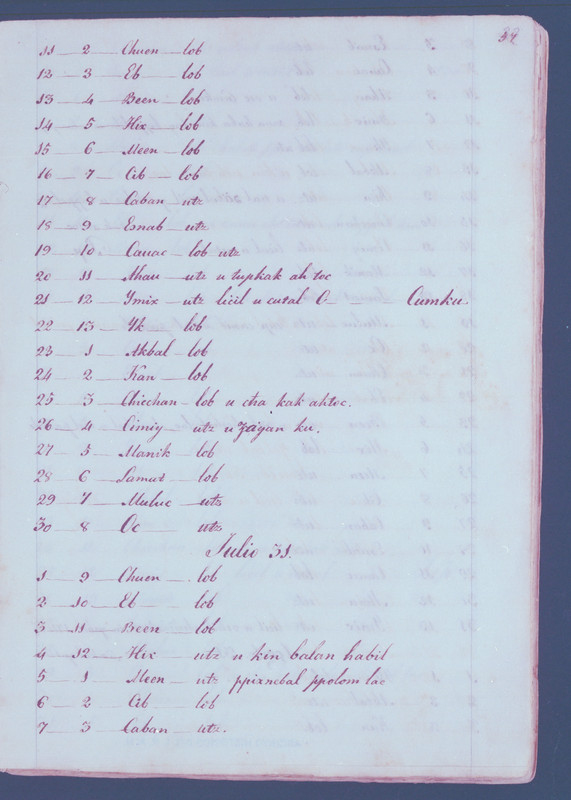 39
11 — 2 — Chuen — lob
12 — 3 — Eb — lob
13 — 4 — Been — lob
14 — 5 — Hix — lob
15 — 6 — Meen — lob
16 — 7 — Cib — lob
17 — 8 — Caban — utz
18 — 9 — Esnab — utz
19 — 10 — Cauac — lob utz
20 — 11 — Ahau — utz u tupkak ah toc
21 — 12 — Ymix — utz licil u cutal C — Cumku.
22 — 13 — Yk — lob
23 — 1 — Akbal — lob
24 — 2 — Kan — lob
25 — 3 — Chicchan — lob u cha kak ahtoc.
26 — 4 — Cimiy — utz u zaɔan ku.
27 — 5 — Manik — lob
28 — 6 — Lamat — lob
29 — 7 — Muluc — utz
30 — 8 — Oc — utz
Julio 31.
1 — 9 — Chuen — lob
2 — 10 — Eb — lob
3 — 11 — Been — lob
4 — 12 — Hix — utz u kin balan habil
5 — 1 — Meen — utz ppixnebal ppolom lae
6 — 2 — Cib — lob
7 — 3 — Caban — utz.